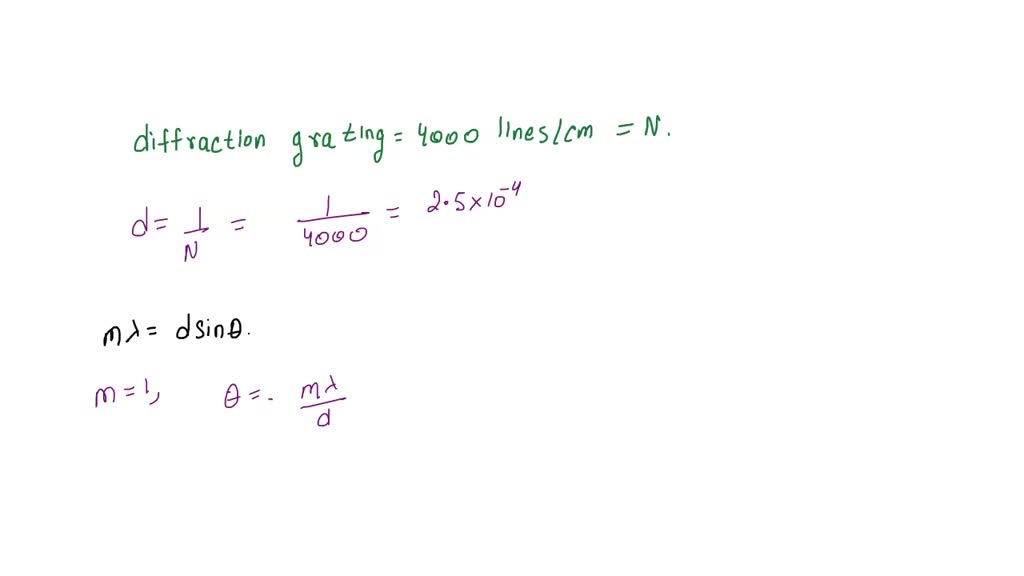 diffraction grating = 4000 lines/cm = N.
d = 1/N = 1/4000 = 2.5 × 10⁻⁴
mλ = d sinθ.
m = 1, θ = . mλ/d